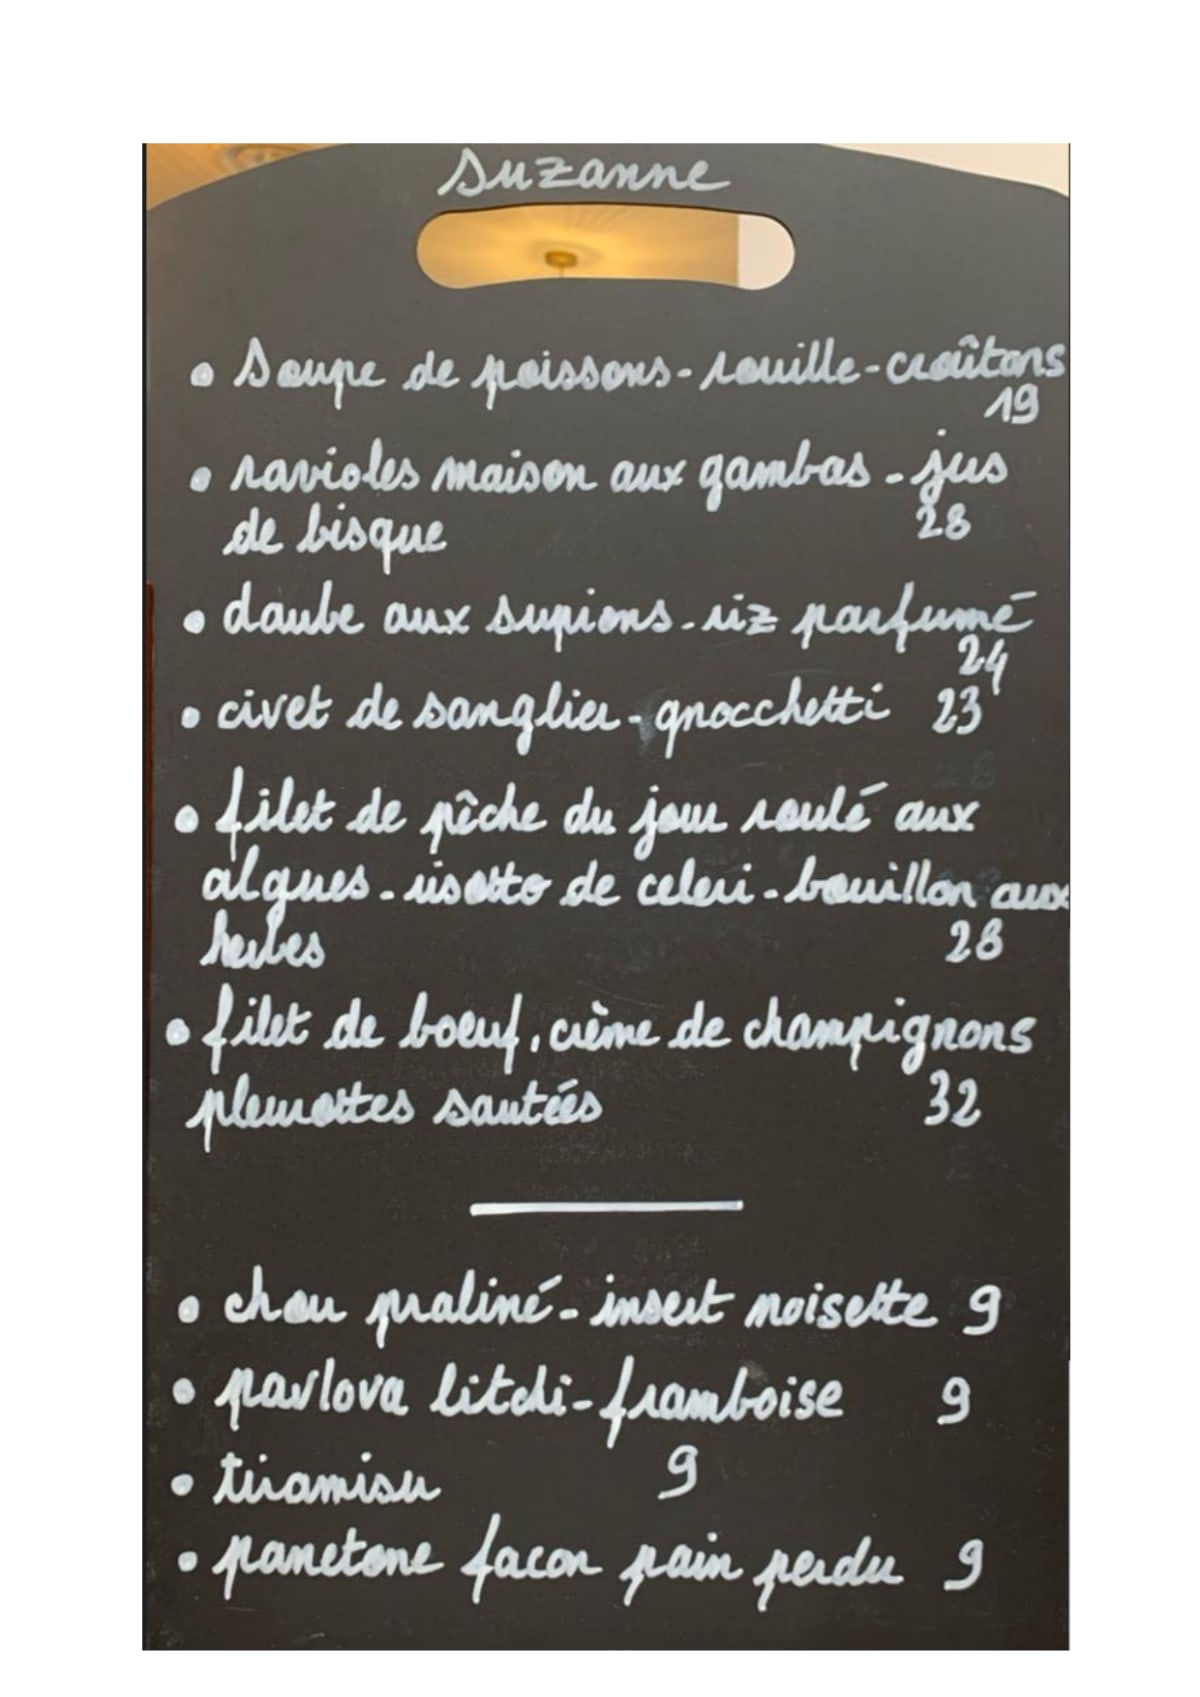 Suzanne
• Soupe de poissons - rouille - croûtons
19
• ravioles maison aux gambas - jus
de bisque 28
• daube aux supions - riz parfumé
24
• civet de sanglier - gnocchetti 23
• filet de pêche du jour roulé aux
algues - risotto de celeri - bouillon aux
herbes 28
• filet de boeuf, crème de champignons
pleurottes sautées 32
• chou praliné - insert noisette 9
• pavlova litchi - framboise 9
• tiramisu 9
• panetone facon pain perdu 9